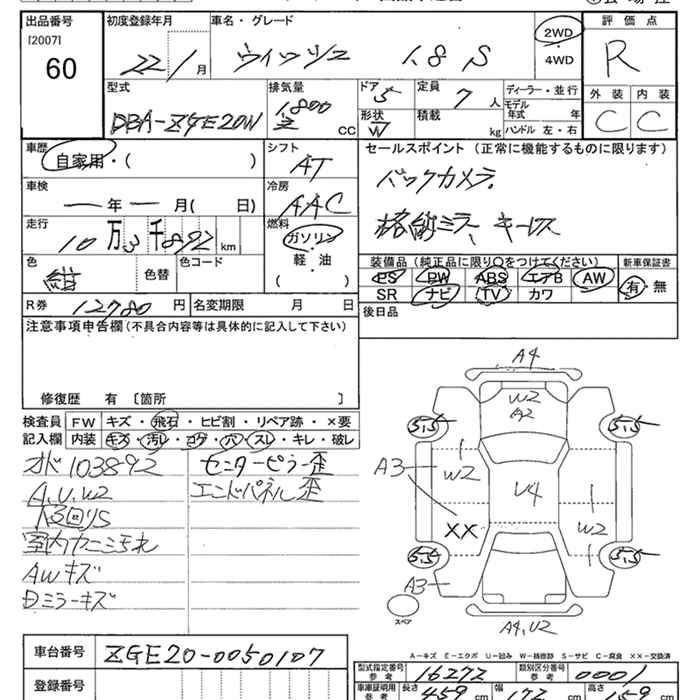 出品番号
[2007]
60
初度登録年月
22/1月
車名・グレード
ウィッシュ 1.8 S
2WD
・
4WD
評価点
R
外装 内装
C C
型式
DBA-ZGE20W
排気量
1,800 CC
ドア 5
形状 W
定員 7人
積載 kg
ディーラー・並行
モデル年式 年
ハンドル 左・右
車歴
自家用・( )
シフト
AT
車検
年 月( 日)
冷房
AAC
走行
10万3千892km
燃料
ガソリン
・
軽・油
( )
色 紺
色替
色コード
R券 12780円
名変期限 月 日
セールスポイント(正常に機能するものに限ります)
バックカメラ
格納ミラー、キーレス
装備品(純正品に限り○をつけてください)
新車保証書
PS PW ABS エアB AW
SR ナビ TV カワ
有・無
後日品
注意事項申告欄(不具合内容等は具体的に記入して下さい)
修復歴 有〔箇所 〕
検査員記入欄
FW キズ・飛石・ヒビ割・リペア跡・×要
内装 キズ・汚レ・コゲ・穴・スレ・キレ・破レ
オド103892
A.U.W2
室内カニミ汚れ
AWキズ
Dミラーキズ
センターピラー歪
エンドパネル歪
A4
W2
A2
5.5
5.5
A3
W2
U4
W2
XX
5.5
5.5
A3
スペア
A4,U2
A-キズ E-エクボ U-凹み W-補修跡 S-サビ C-腐食 XX-交換済
車台番号 ZGE20-0050107
登録番号
型式指定番号 参考 16272
類別区分番号 参考 0001
車庫証明用 参考
長さ 459 cm
幅 172 cm
高さ 159 cm